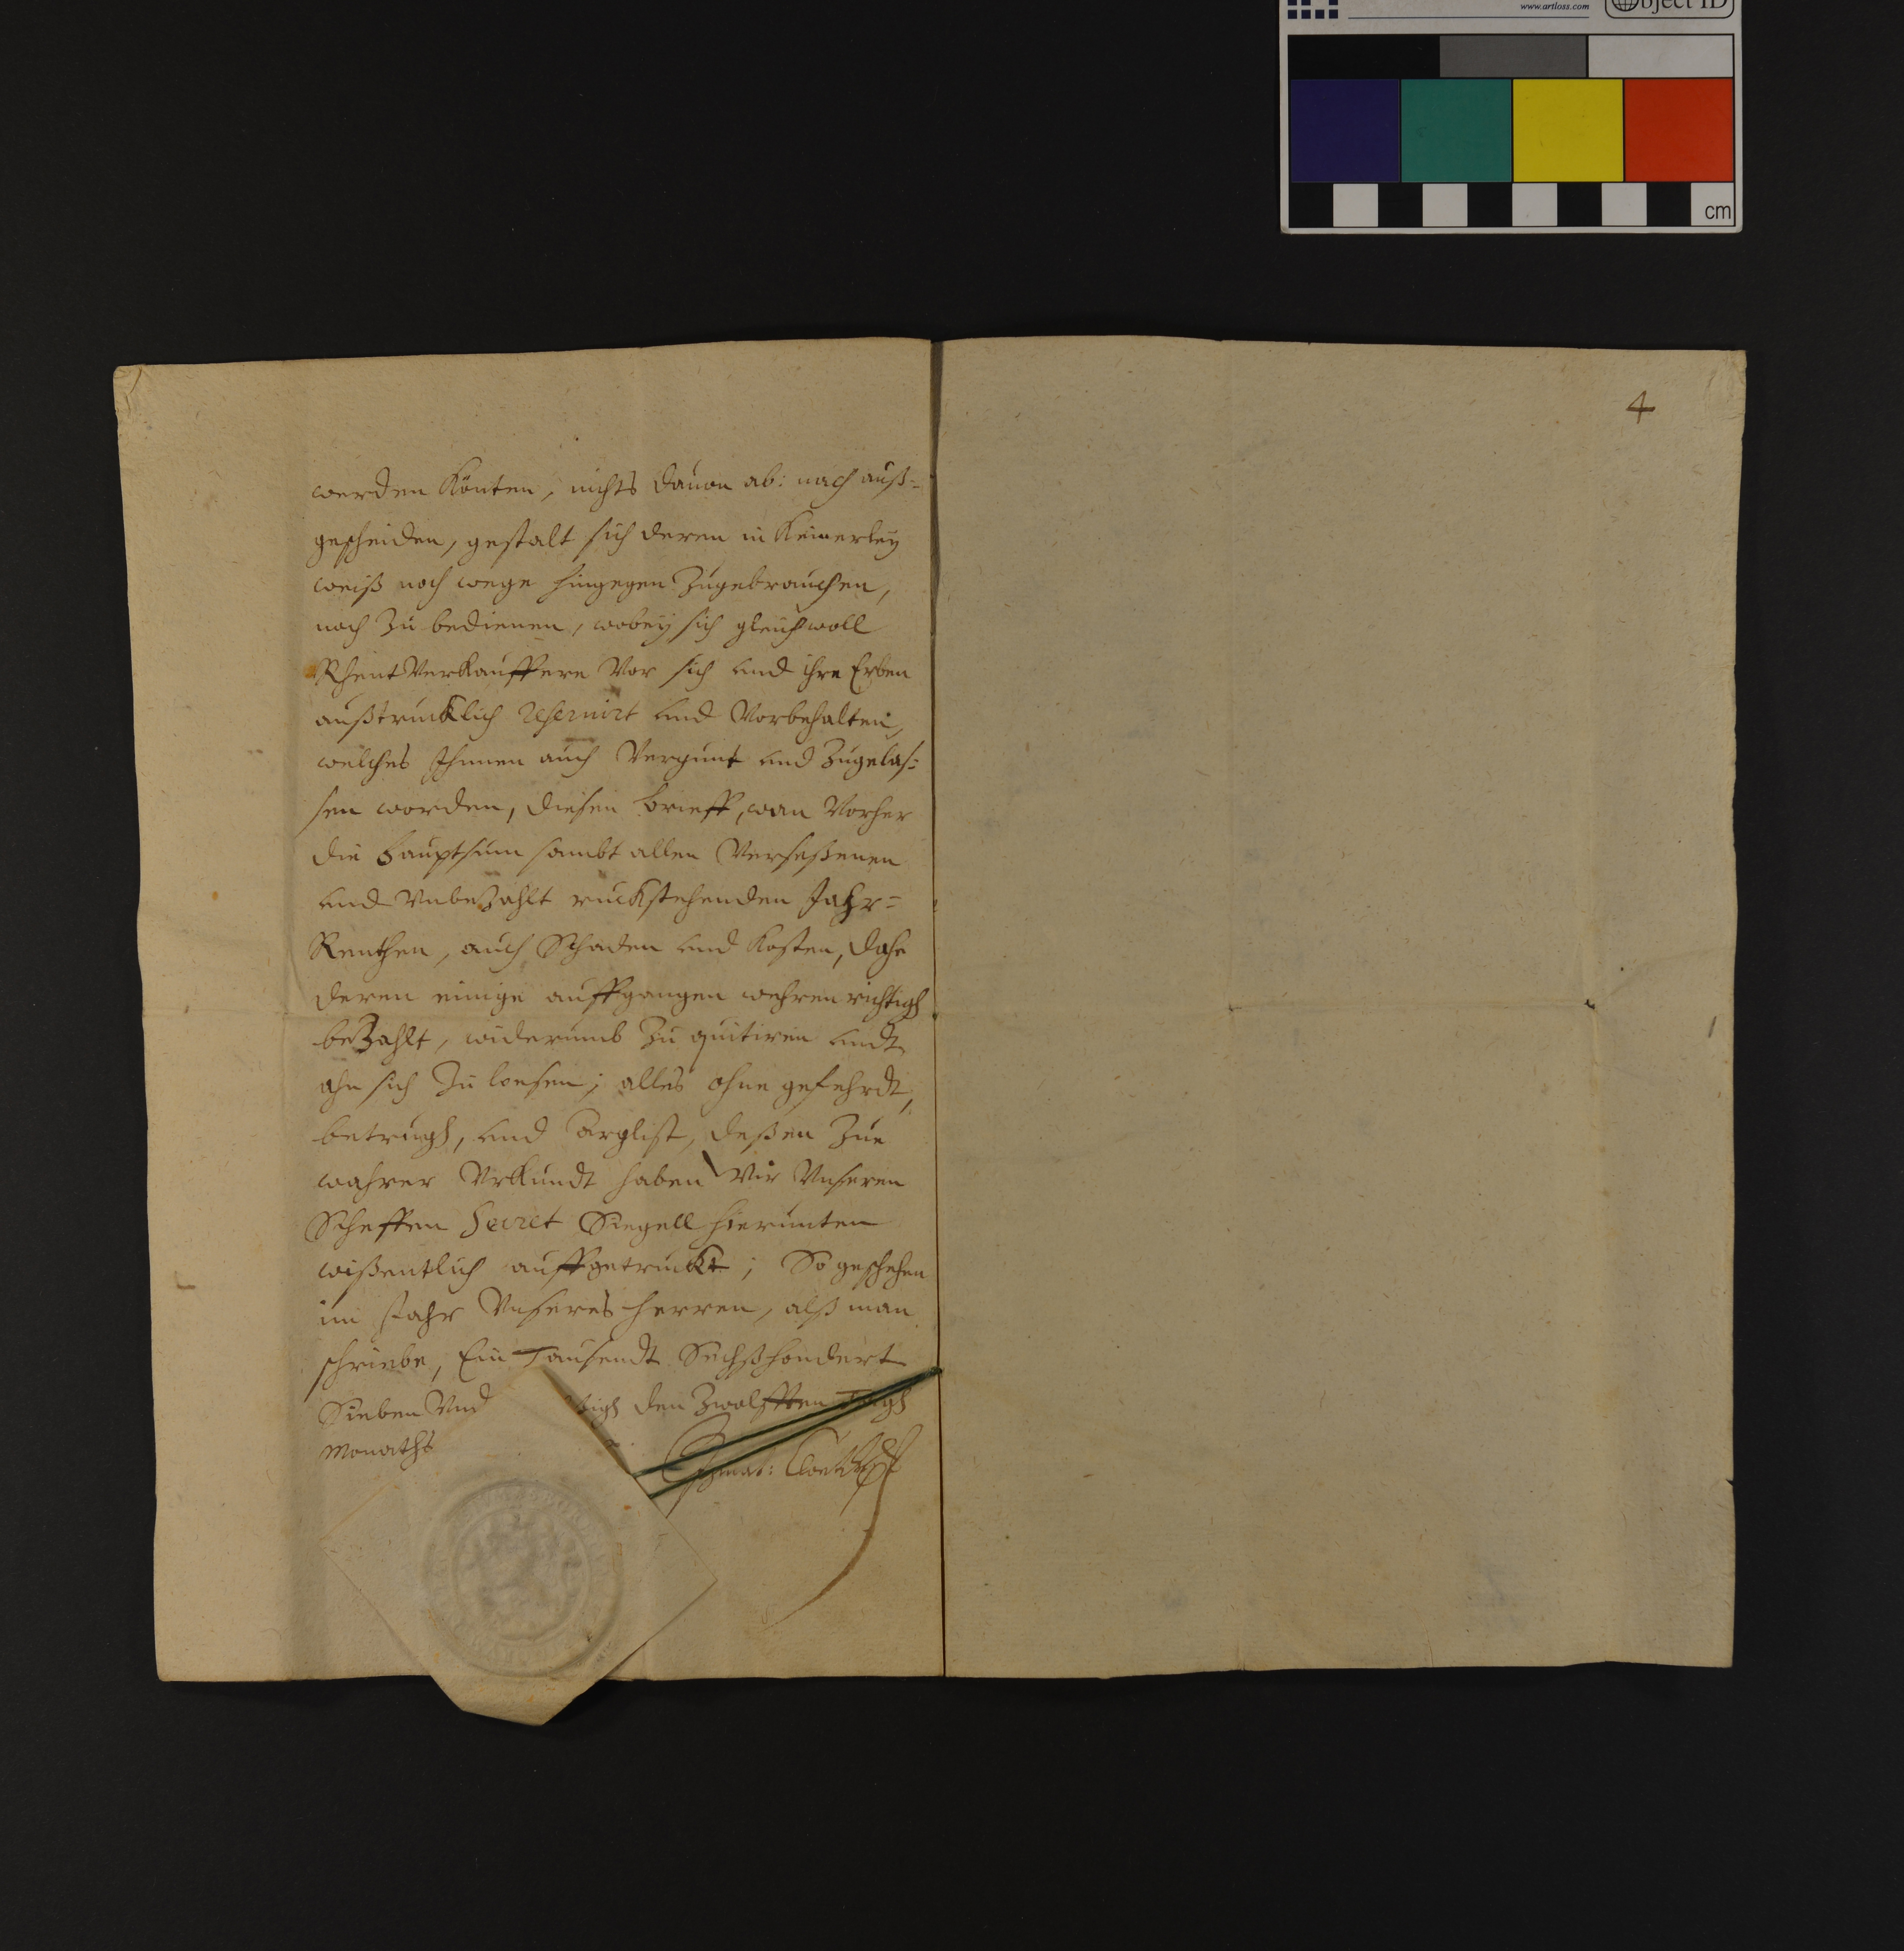 www.artloss.com
Object ID
cm
4
werden könten, nichts dauon ab: noch auß=
gescheiden, gestalt sich deren in keinerley
weiß noch wege hingegen zugebrauchen,
noch zu bedienen, wobey sich gleichwoll
Rhent Verkauffere Vor sich und ihre Erben
außtrucklich reservirt und Vorbehalten,
welches Ihnnen auch Vergunt und zugelas=
sen worden, diesen brieff, wan Vorher
die hauptsum sambt allen Verseßenen
und Vnbezahlt ruckstehenden Jahr=
Renthen, auch Schaden und kosten, dahe
deren einige auffgangen wehren richtigh
bezahlt, widerumb zu quitiren undt
ahn sich zu loesen; alles ohne gefehrdt,
betrugh, und arglist, deßen Zue
wahrer Vrkundt haben Wir Vnseren
Scheffen Secret Siegell hierunten
wißentlich auffgetruckt; So geschehen
im Jahr Vnseres herren, alß man
schriebe, Ein Tausendt Sechßhondert
Sieben Vnd tzigh den Zwolfften Tagh
Monaths